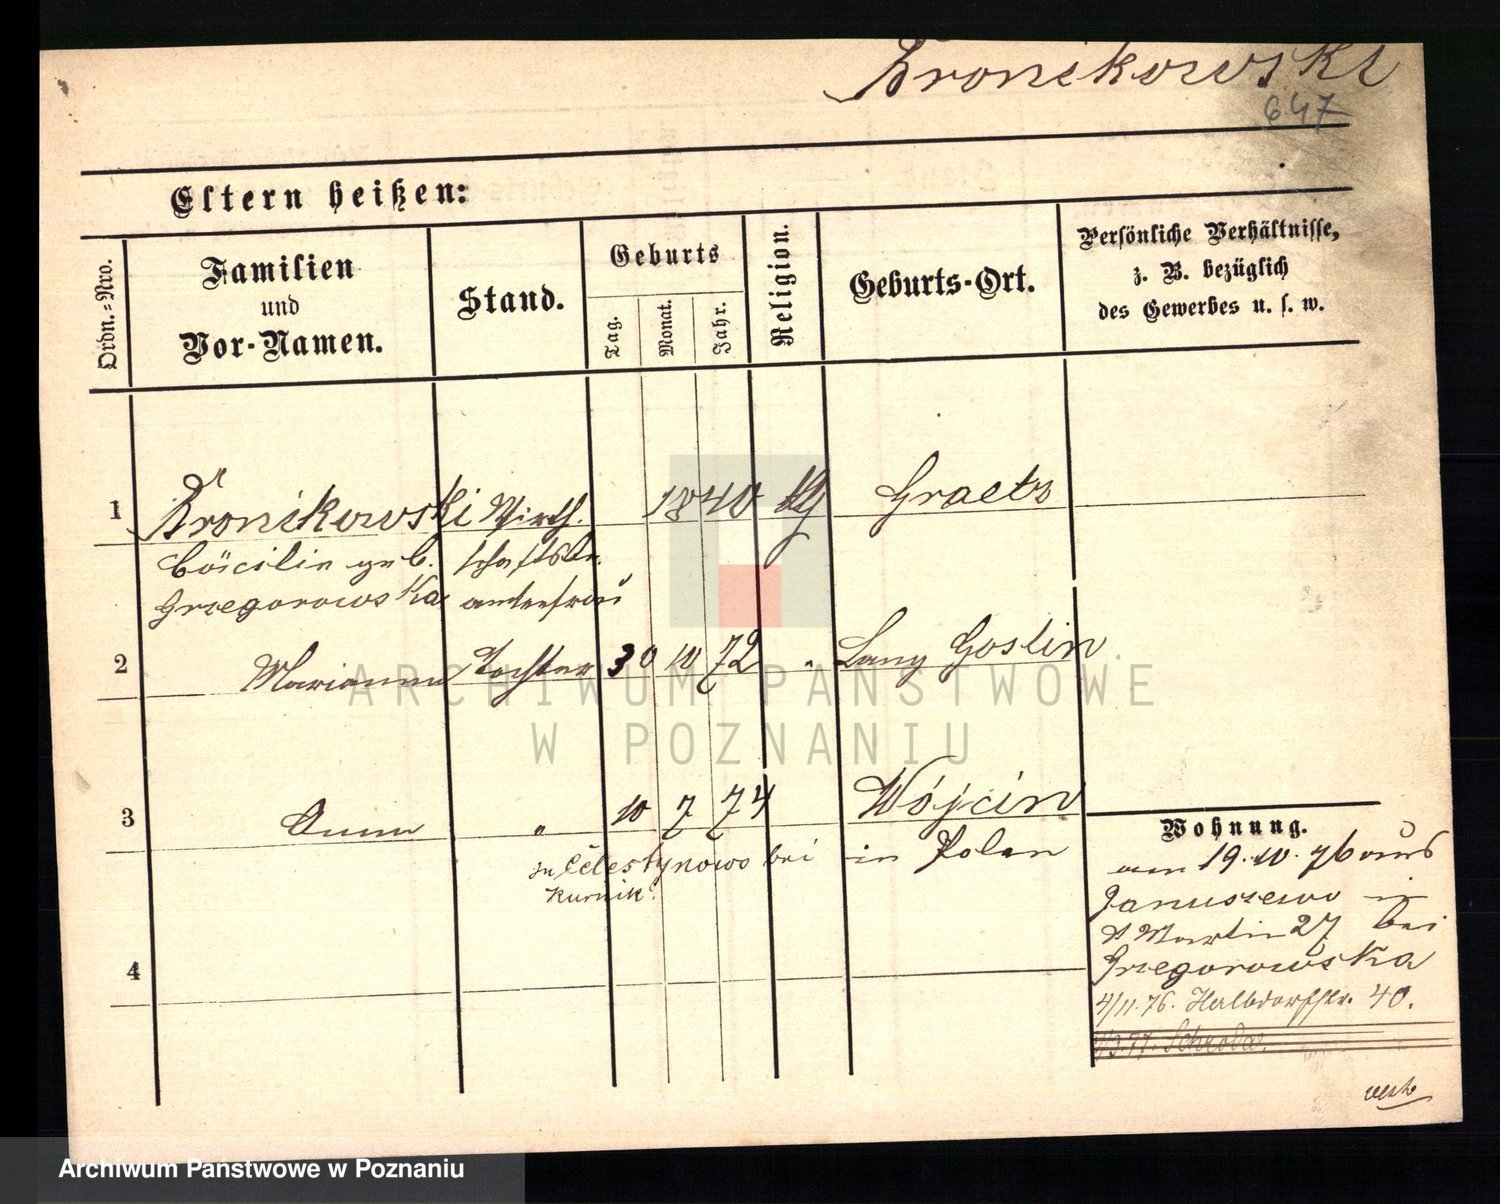 Kronikowski
647
Eltern heißen:
Ordn.=Nro.
Familien
und
Vor-Namen.
Stand.
Geburts
Tag.
Monat.
Jahr.
Religion.
Geburts-Ort.
Persönliche Verhältnisse,
z. B. bezüglich
des Gewerbes u. s. w.
1 Kronikowski Wirth- 1840 Graetz
Cäcilie geb. schaftsbe-
Grzegorowska amtenfrau
2 Marianna Tochter 30 10 72 " Lang Goslin
3 Anna " 10 7 74 Wójcin
in Polen
zu Celestynowo bei
Kurnik.
4
Wohnung.
am 19.10.76 aus
Januszewo in
St Martin 27 bei
Grzegorowska
4/11.76. Halbdorfstr. 40.
1/3.77. Schroda.
ARCHIWUM PAŃSTWOWE
W POZNANIU
Archiwum Państwowe w Poznaniu